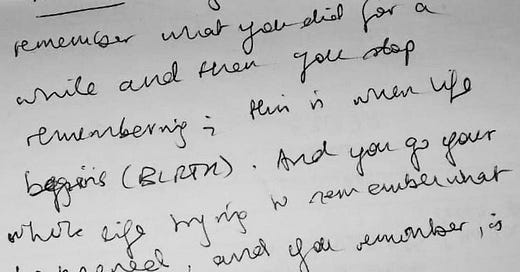 remember what you did for a
while and then you stop
remembering; this is when life
begins (BIRTH). And you go your
whole life trying to remember what
happened, and you remember, is